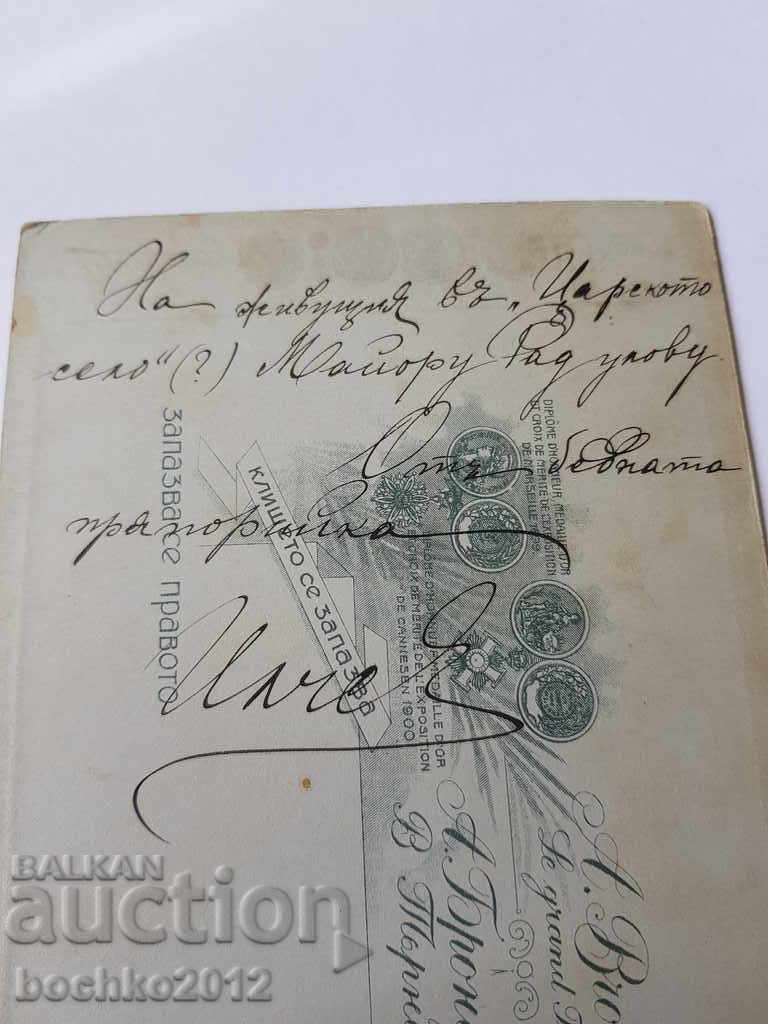 На живущия въ „Царското
село“ (?) Майору Радулову.
Отъ бедната
прапорщика
Илчев
ЗАПАЗВА СЕ ПРАВОТО
КЛИШЕТО СЕ ЗАПАЗВА
DIPLÔME D'HONNEUR, MEDAILLE D'OR
ET CROIX DE MÉRITE DE L'EXPOSITION
DE MARSEILLE 1899.
MEDAILLE D'OR
CROIX DE MÉRITE DE L'EXPOSITION
DE CANNES EN 1900
A. Bro
Le grand
А. Брон
В Търн
BALKAN
auction
bochko2012